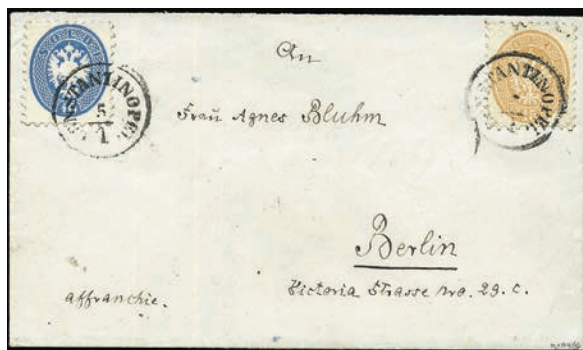 SOLDI
CONSTANTINOPEL
5
1
CONSTANTINOPEL
An
Frau Agnes Bluhm
Berlin
Victoria Strasse Nro. 29. c.
affranchie.